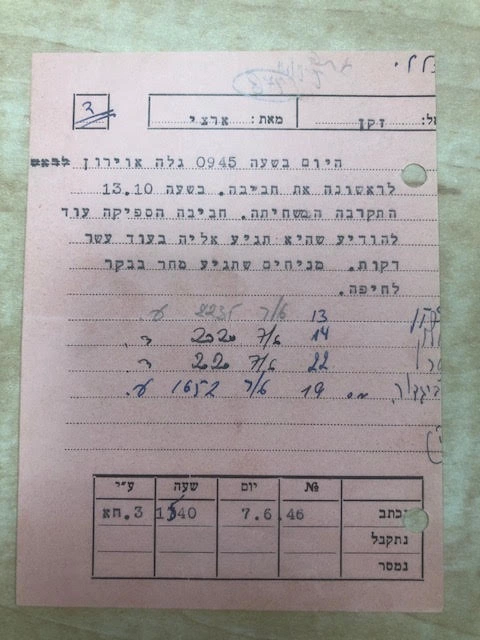 ללי
ד
אל: זקן מאת: ארצי
היום בשעה 0945 גלה אוירון
לראשונה את חביבה. בשעה 13.10
התקרבה המשחיתה. חביבה הספיקה עוד
להודיע שהיא תגיע אליה בעוד עשר
דקות. מניחים שתגיע מחר בבקר
לחיפה.
13 7/6 2235 ע.
14 7/6 2020 ד.
22 7/6 2020 ד.
19 7/6 1652 ע.
№ יום שעה ע״י
נכתב 7.6.46 1540 3.חא
נתקבל
נמסר